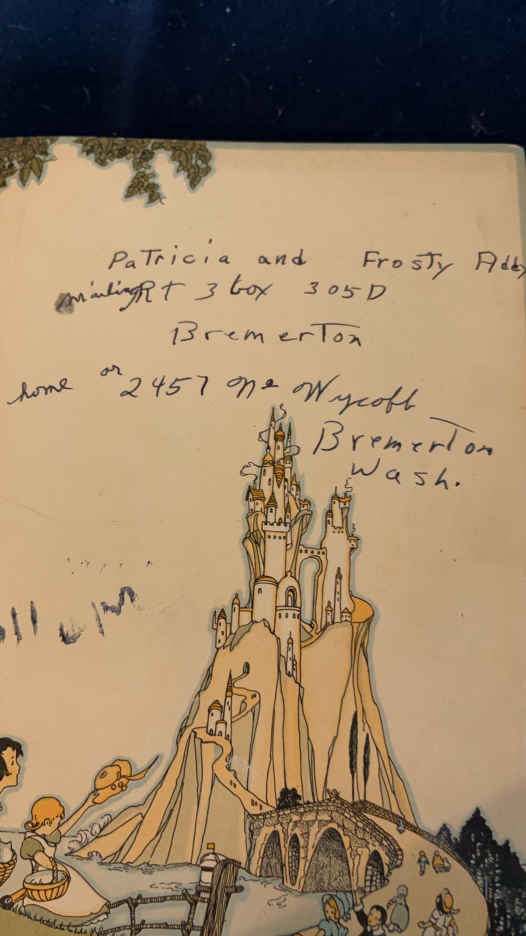 Patricia and Frosty Addy
mailing RT 3 box 305D
Bremerton
home or 2457 Ne Wycoff
Bremerton
Wash.